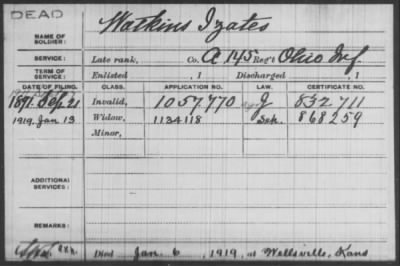 DEAD
NAME OF SOLDIER: Watkins Izates
SERVICE: Late rank, Co. A. 145 Reg't Ohio Inf.
TERM OF SERVICE: Enlisted , 1 Discharged , 1
DATE OF FILING. CLASS. APPLICATION NO. LAW. CERTIFICATE NO.
1891 Sep. 21 Invalid, 1057,770 J 832,711
1919. Jan 13 Widow, 1134118 868259
Minor,
ADDITIONAL SERVICES:
REMARKS:
Died Jan. 6, 1919, at Wellsville, Kans